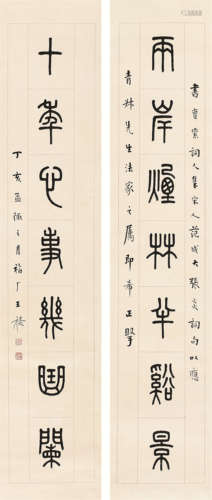 書詞人集宋人范成大張炎詞句以應
兩岸煙林半谿景
青先生法家之屬即希正擘
十年心事幾曲闌
丁亥孟陬之月福厂王禔